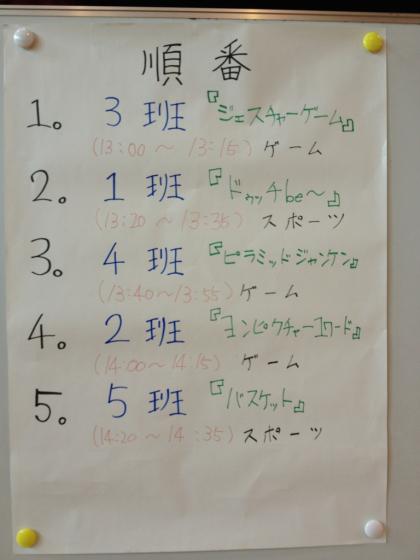 順番
1。 3班 『ジェスチャーゲーム』
(13:00 ~ 13:15) ゲーム
2。 1班 『ドゥッチbe~』
(13:20 ~ 13:35) スポーツ
3。 4班 『ピラミッドジャンケン』
(13:40~13:55) ゲーム
4。 2班 『ヨンピクチャー1ワード』
(14:00~14:15) ゲーム
5。 5班 『バスケット』
(14:20 ~ 14:35) スポーツ